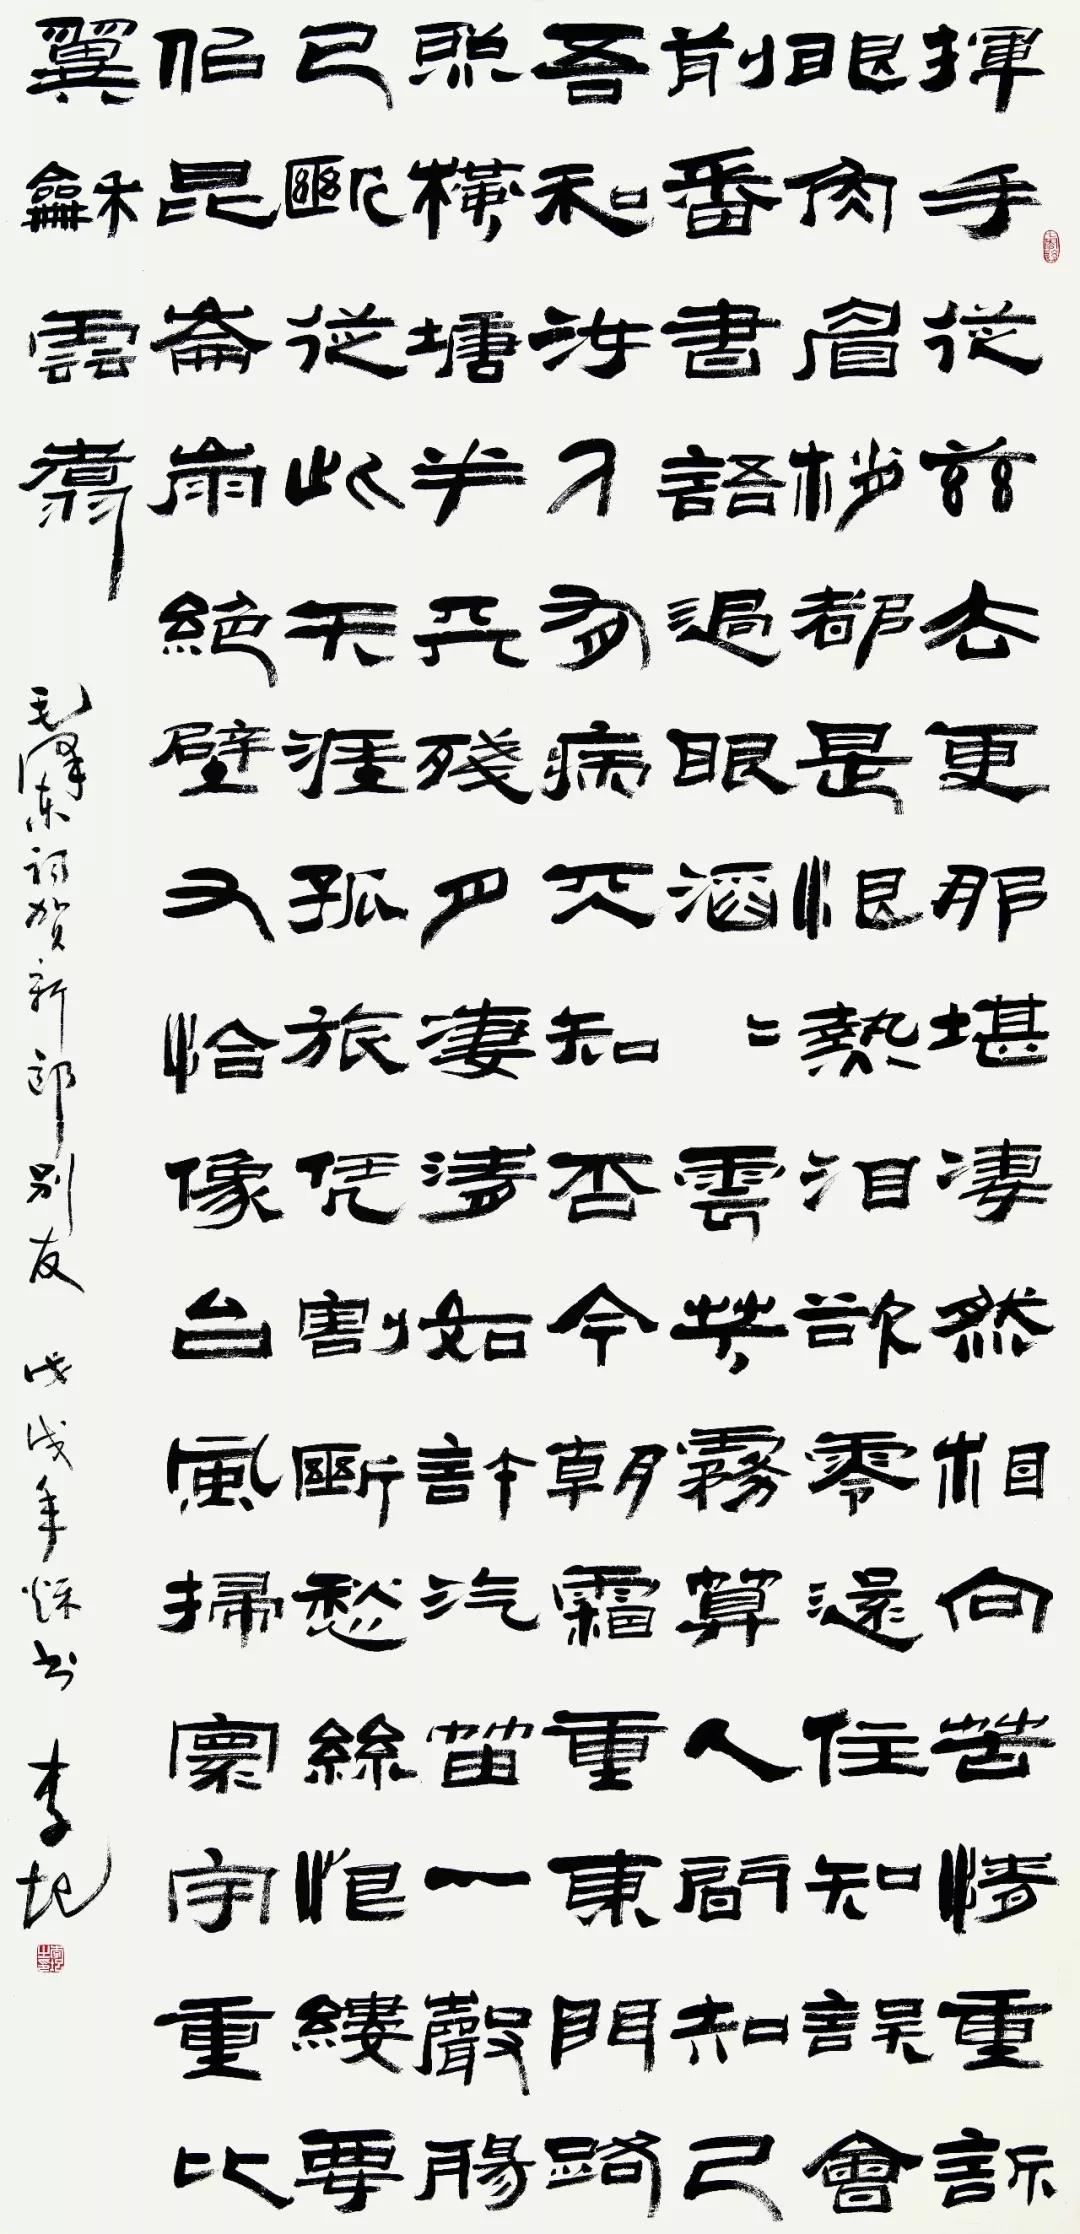 揮手從茲去更那堪淒然相向苦情重訴
眼角眉梢都是恨熱泪欲零還住知誤會
前番書語過眼滔〻雲共霧算人間知己
吾和汝人有病天知否今朝霜重東門路
照橫塘半天殘月淒清如許汽笛一聲腸
已斷從此天涯孤旅凭割斷愁絲恨縷要
似昆崙崩絕壁又恰像台風掃寰宇重比
翼龢雲翥
毛澤東詞賀新郎別友 戊戌年秋書 李